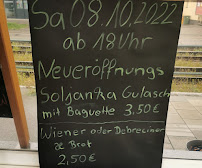 Sa 08.10.2022
ab 18 Uhr
Neueröffnungs
Soljanka Gulasch
mit Baguette 3.50 €
Wiener oder Debreziner
& Brot
2,50 €